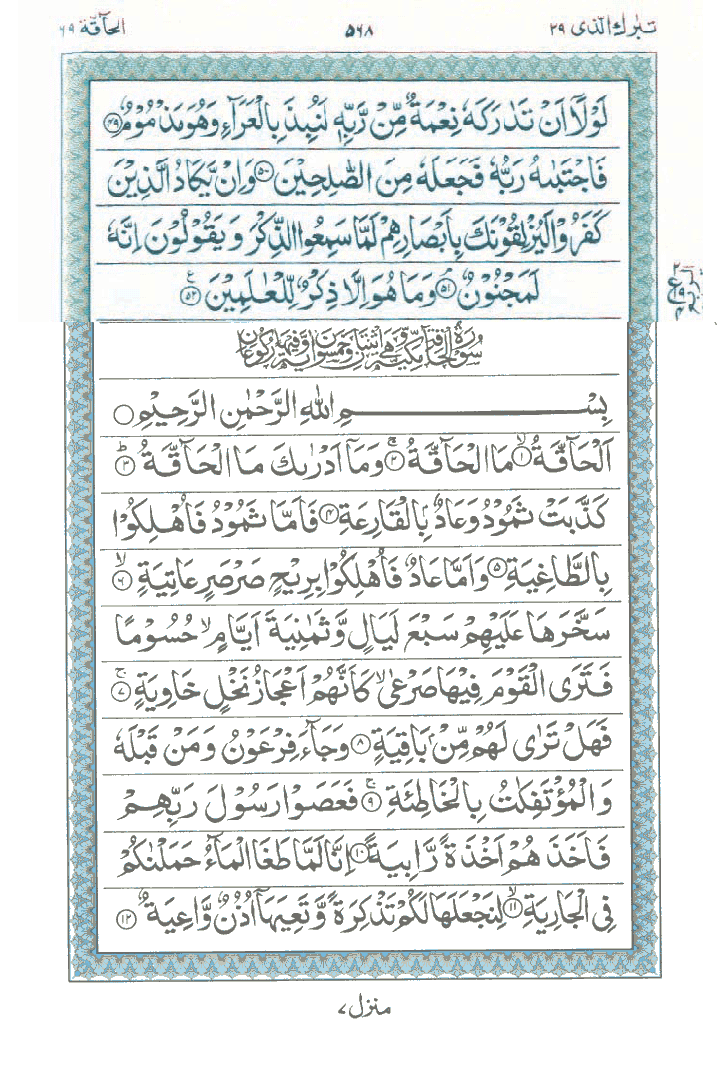 تبٰرك الذی ۲۹
۵۶۸
الحآقة ۶۹
لَوْلَاۤ اَنْ تَدٰرَكَهٗ نِعْمَةٌ مِّنْ رَّبِّهٖ لَنُبِذَ بِالْعَرَآءِ وَهُوَ مَذْمُوْمٌ ۴۹
فَاجْتَبٰىهُ رَبُّهٗ فَجَعَلَهٗ مِنَ الصّٰلِحِيْنَ ۵۰ وَاِنْ يَّكَادُ الَّذِيْنَ
كَفَرُوْا لَيُزْلِقُوْنَكَ بِاَبْصَارِهِمْ لَمَّا سَمِعُوا الذِّكْرَ وَيَقُوْلُوْنَ اِنَّهٗ
لَمَجْنُوْنٌ ۘ ۵۱ وَمَا هُوَ اِلَّا ذِكْرٌ لِّلْعٰلَمِيْنَ ۵۲ ع
سُوْرَةُ الْحَآقَّةِ مَكِّيَّةٌ وَّهِيَ اثْنَتَانِ وَخَمْسُوْنَ اٰيَةً وَّفِيْهَا رُكُوْعَانِ
بِسْمِ اللّٰهِ الرَّحْمٰنِ الرَّحِيْمِ
اَلْحَآقَّةُ ۙ ۱ مَا الْحَآقَّةُ ۚ ۲ وَمَاۤ اَدْرٰىكَ مَا الْحَآقَّةُ ؕ ۳
كَذَّبَتْ ثَمُوْدُ وَعَادٌۢ بِالْقَارِعَةِ ۴ فَاَمَّا ثَمُوْدُ فَاُهْلِكُوْا
بِالطَّاغِيَةِ ۵ وَاَمَّا عَادٌ فَاُهْلِكُوْا بِرِيْحٍ صَرْصَرٍ عَاتِيَةٍ ۙ ۶
سَخَّرَهَا عَلَيْهِمْ سَبْعَ لَيَالٍ وَّثَمٰنِيَةَ اَيَّامٍ ۙ حُسُوْمًا
فَتَرَى الْقَوْمَ فِيْهَا صَرْعٰى ۙ كَاَنَّهُمْ اَعْجَازُ نَخْلٍ خَاوِيَةٍ ۚ ۷
فَهَلْ تَرٰى لَهُمْ مِّنْۢ بَاقِيَةٍ ۸ وَجَآءَ فِرْعَوْنُ وَمَنْ قَبْلَهٗ
وَالْمُؤْتَفِكٰتُ بِالْخَاطِئَةِ ۚ ۹ فَعَصَوْا رَسُوْلَ رَبِّهِمْ
فَاَخَذَهُمْ اَخْذَةً رَّابِيَةً ۱۰ اِنَّا لَمَّا طَغَا الْمَآءُ حَمَلْنٰكُمْ
فِي الْجَارِيَةِ ۙ ۱۱ لِنَجْعَلَهَا لَكُمْ تَذْكِرَةً وَّتَعِيَهَاۤ اُذُنٌ وَّاعِيَةٌ ۱۲
منزل ۷